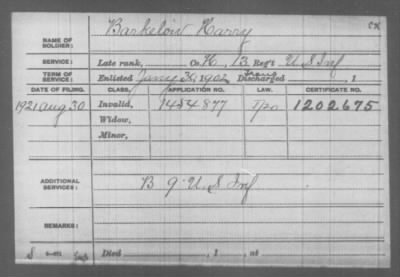 CK
NAME OF SOLDIER: Barkelow Harry
SERVICE: Late rank, Co. H, 13 Reg't U S Inf
TERM OF SERVICE: Enlisted Jany 30, 1902 Trans Discharged , 1
DATE OF FILING. CLASS. APPLICATION NO. LAW. CERTIFICATE NO.
1921 Aug 30 Invalid, 1454877 1202675
Widow,
Minor,
ADDITIONAL SERVICES: B 9" U.S Inf
REMARKS:
S Died , 1 , at